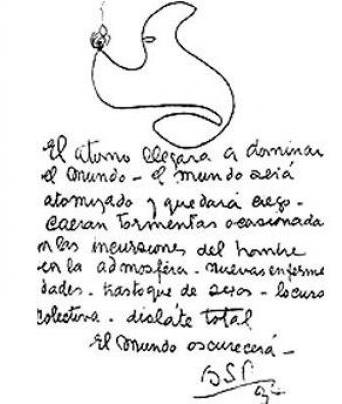 El atomo llegara a dominar
el mundo - el mundo será
atomizado y quedará ciego.
caeran tormentas ocasionada
en las incursiones del hombre
en la admosféra. nuevas enferme
dades. trastoque de sexos - locura
colectiva. disláte total
El Mundo oscurecerá -
BSP